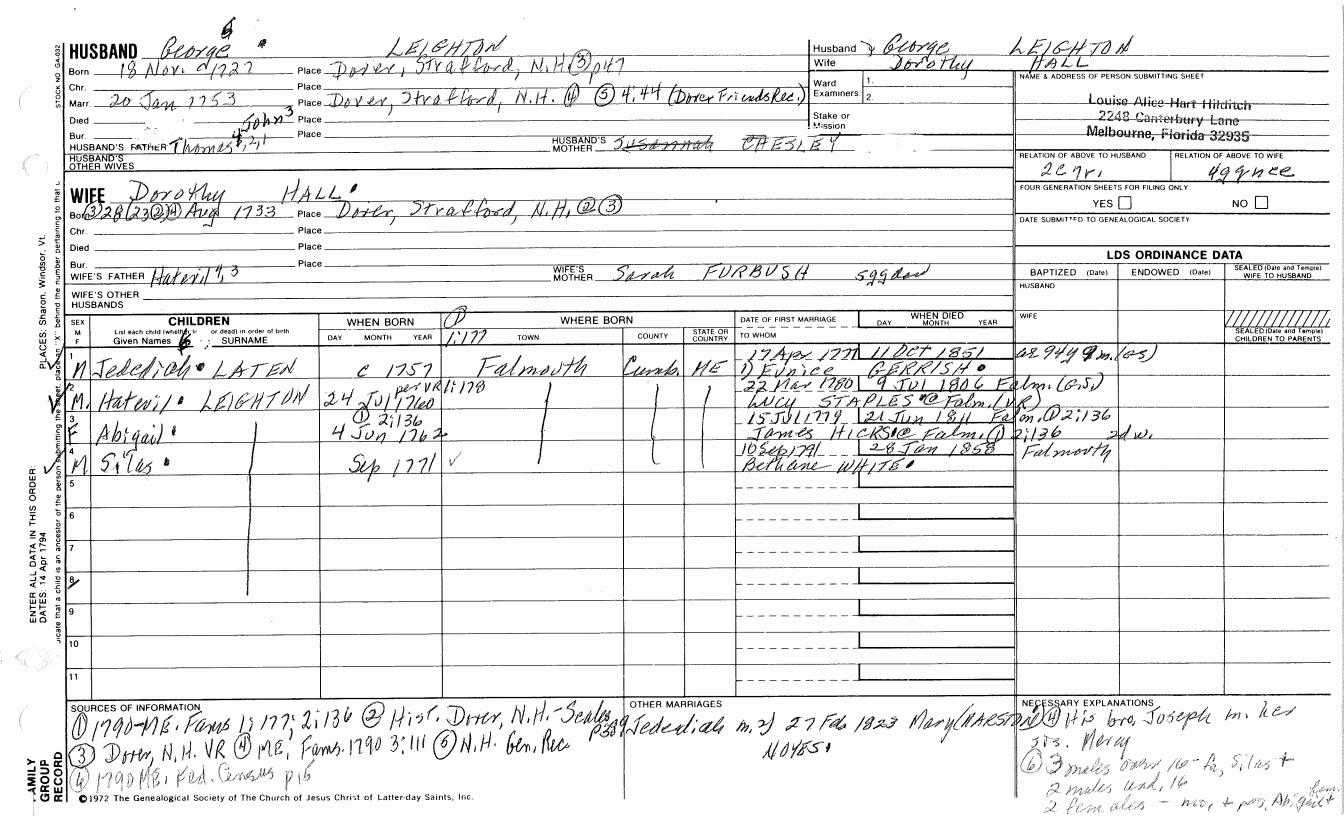 6
HUSBAND George LEIGHTON
Born 18 Nov. 1727 Place Dover, Strafford, N.H. ③ p47
Chr. Place
Marr. 20 Jan 1753 Place Dover, Strafford, N.H. ④ ⑤ 4:44 (Dover Friends Rec.)
Died Place
John 3
Bur. Place
HUSBAND'S FATHER Thomas 4, 2, 1 HUSBAND'S MOTHER Susannah CHESLEY
HUSBAND'S OTHER WIVES
WIFE Dorothy HALL
Born ③ 28 (23 ② ④ Aug 1733 Place Dover, Strafford, N.H. ② ③
Chr. Place
Died Place
Bur. Place
WIFE'S FATHER Hatevil 4, 3 WIFE'S MOTHER Sarah FURBUSH 5ggdau
WIFE'S OTHER HUSBANDS
Husband George LEIGHTON
Wife Dorothy HALL
Ward Examiners 1. 2.
Stake or Mission
NAME & ADDRESS OF PERSON SUBMITTING SHEET
Louise Alice Hart Hilditch
2248 Canterbury Lane
Melbourne, Florida 32935
RELATION OF ABOVE TO HUSBAND RELATION OF ABOVE TO WIFE
2C7r. 4ggnce
FOUR GENERATION SHEETS FOR FILING ONLY
YES NO
DATE SUBMITTED TO GENEALOGICAL SOCIETY
LDS ORDINANCE DATA
BAPTIZED (Date) ENDOWED (Date) SEALED (Date and Temple) WIFE TO HUSBAND
HUSBAND
WIFE
SEALED (Date and Temple) CHILDREN TO PARENTS
SEX M F CHILDREN List each child (whether or dead) in order of birth Given Names SURNAME
WHEN BORN DAY MONTH YEAR
① 1:177 WHERE BORN TOWN COUNTY STATE OR COUNTRY
DATE OF FIRST MARRIAGE TO WHOM
WHEN DIED DAY MONTH YEAR
1 M Jedediah LATEN c 1757 Falmouth Cumb. ME 17 Apr 1777 11 Oct 1851 ae 94y 9m. (GS)
1) Eunice GERRISH
2 M. Hatevil LEIGHTON 24 Jul 1760 per VR 1:178 22 Mar 1780 9 Jul 1806 Falm. (G.S.)
Lucy STAPLES @ Falm. (VR)
3 F Abigail ① 2:136 4 Jun 1762 15 Jul 1779 21 Jun 1811 Falm. ① 2:136
James HICKS @ Falm. ① 2:136 2d w.
4 M Silas Sep 1771 10 Sep 1791 28 Jan 1858 Falmouth
Bethane WHITE
5
6
7
8
9
10
11
SOURCES OF INFORMATION
① 1790-ME. Fams 1:177; 2:136 ② Hist. Dover, N.H.-Scales p339
③ Dover, N.H. VR ④ ME. Fams. 1790 3:111 ⑤ N.H. Gen. Rec.
⑥ 1790 ME. Fed. Census p16
OTHER MARRIAGES
Jedediah m. 2) 27 Feb 1823 Mary (MARSTON)
NOYES
NECESSARY EXPLANATIONS
④ His bro. Joseph m. her
sis. Mercy
⑥ 3 males over 16 - fa, Silas +
2 males und. 16
2 females - mo, + pos. Abigail +
fam.
©1972 The Genealogical Society of The Church of Jesus Christ of Latter-day Saints, Inc.
STOCK NO. GA-032
PLACES: Sharon, Windsor, Vt.
ENTER ALL DATA IN THIS ORDER
DATES: 14 Apr 1794
FAMILY GROUP RECORD